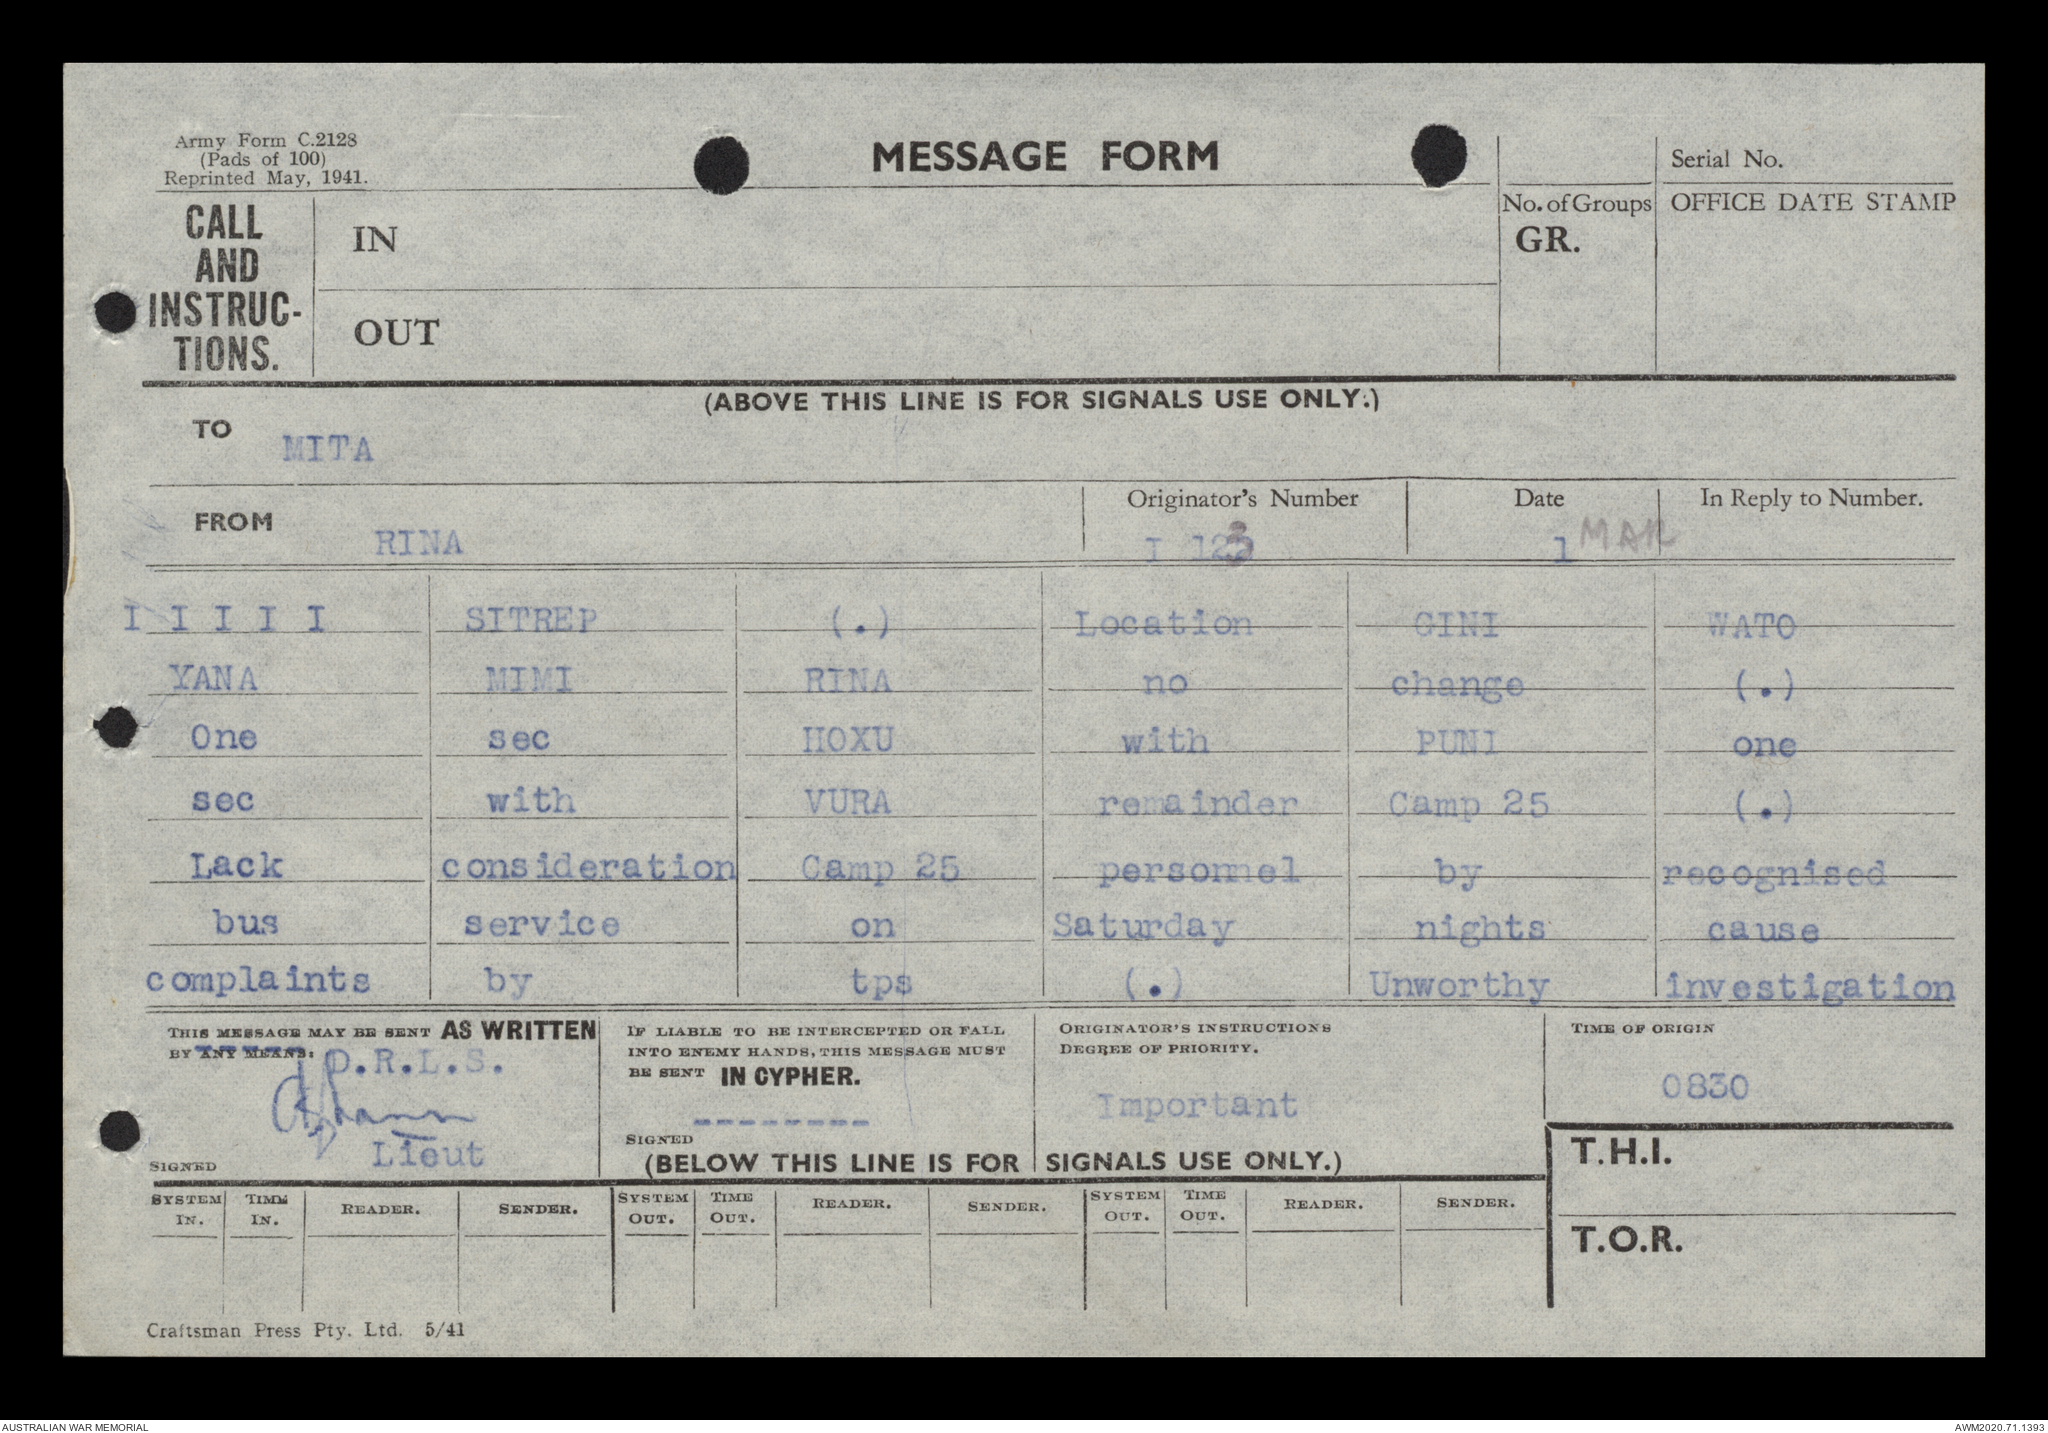 Army Form C.2128
(Pads of 100)
Reprinted May, 1941.
MESSAGE FORM
Serial No.
CALL AND INSTRUC-TIONS.
IN
OUT
No. of Groups
GR.
OFFICE DATE STAMP
(ABOVE THIS LINE IS FOR SIGNALS USE ONLY.)
TO MITA
FROM RINA
Originator's Number I 123
Date 1 MAR
In Reply to Number.
I I I I I SITREP (.) Location GINI WATO
YANA MIMI RINA no change (.)
One sec HOXU with PUNI one
sec with VURA remainder Camp 25 (.)
Lack consideration Camp 25 personnel by recognised
bus service on Saturday nights cause
complaints by tps (.) Unworthy investigation
THIS MESSAGE MAY BE SENT AS WRITTEN
BY ANY MEANS:
D.R.L.S.
Lieut
SIGNED
IF LIABLE TO BE INTERCEPTED OR FALL
INTO ENEMY HANDS, THIS MESSAGE MUST
BE SENT IN CYPHER.
SIGNED
ORIGINATOR'S INSTRUCTIONS
DEGREE OF PRIORITY.
Important
TIME OF ORIGIN
0830
(BELOW THIS LINE IS FOR SIGNALS USE ONLY.)
T.H.I.
T.O.R.
SYSTEM IN. TIME IN. READER. SENDER. SYSTEM OUT. TIME OUT. READER. SENDER. SYSTEM OUT. TIME OUT. READER. SENDER.
Craftsman Press Pty. Ltd. 5/41
AUSTRALIAN WAR MEMORIAL
AWM2020.71.1393